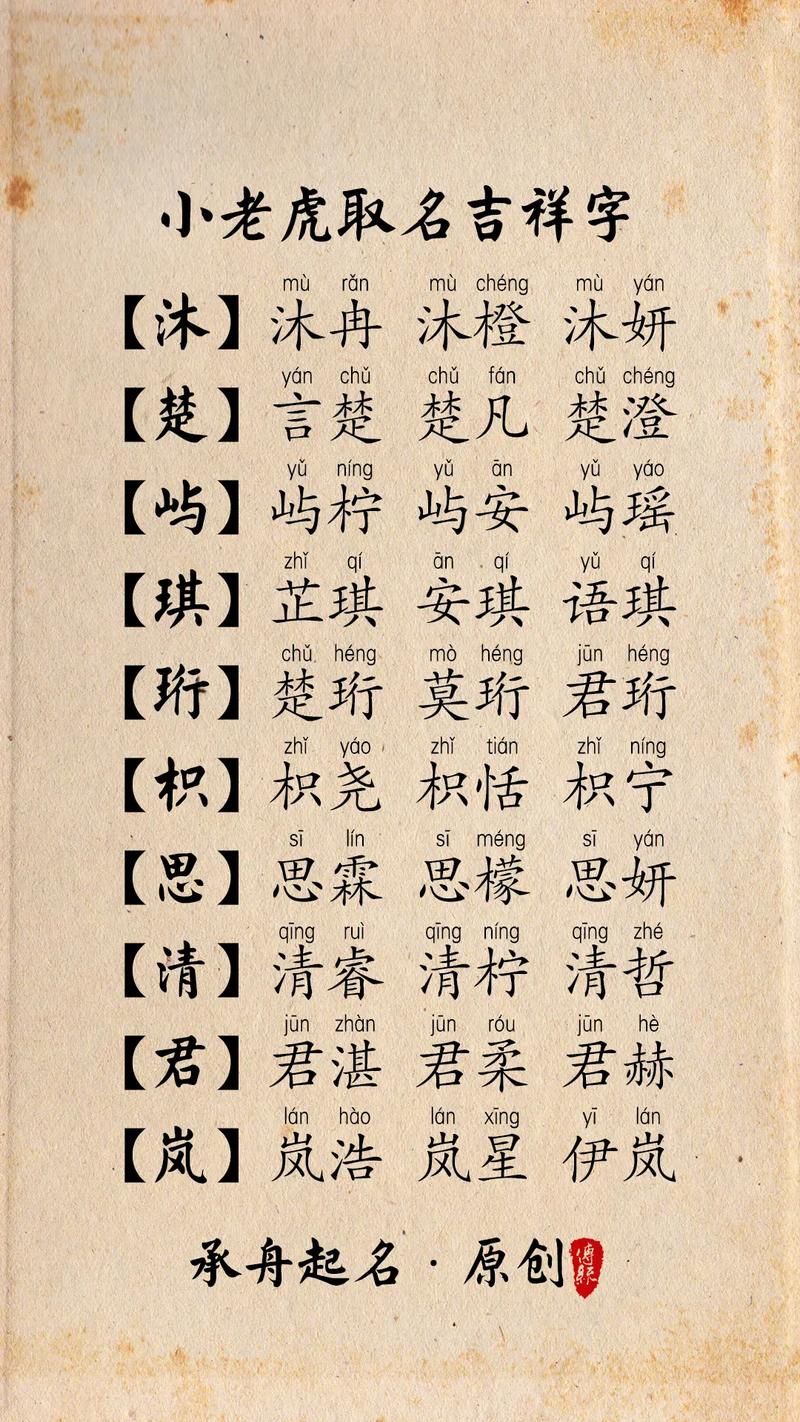 小老虎取名吉祥字
mù rǎn mù chéng mù yán
【沐】 沐冉 沐橙 沐妍
yán chǔ chǔ fán chǔ chéng
【楚】 言楚 楚凡 楚澄
yǔ níng yǔ ān yǔ yáo
【屿】 屿柠 屿安 屿瑶
zhǐ qí ān qí yǔ qí
【琪】 芷琪 安琪 语琪
chǔ héng mò héng jūn héng
【珩】 楚珩 莫珩 君珩
zhǐ yáo zhǐ tián zhǐ níng
【枳】 枳尧 枳恬 枳宁
sī lín sī méng sī yán
【思】 思霖 思檬 思妍
qīng ruì qīng níng qīng zhé
【清】 清睿 清柠 清哲
jūn zhàn jūn róu jūn hè
【君】 君湛 君柔 君赫
lán hào lán xīng yī lán
【岚】 岚浩 岚星 伊岚
承舟起名·原创